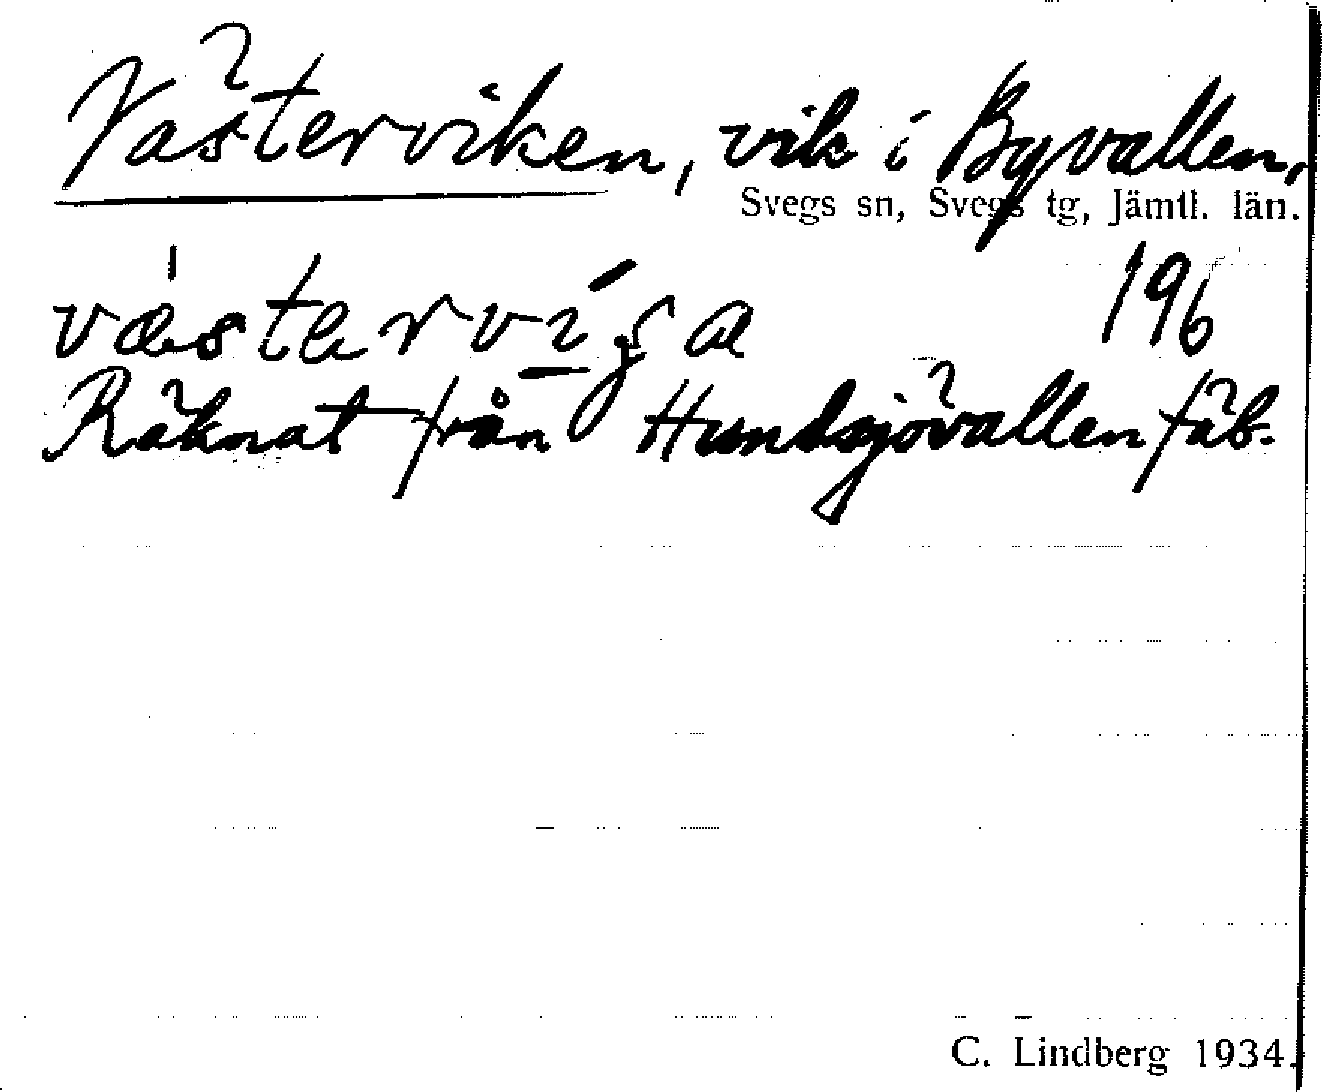 Västerviken, vik i Byvallen,
Svegs sn, Svegs tg, Jämtl. län.
væstervíga 196
Räknat från Hundsjövallen fäb.
C. Lindberg 1934.